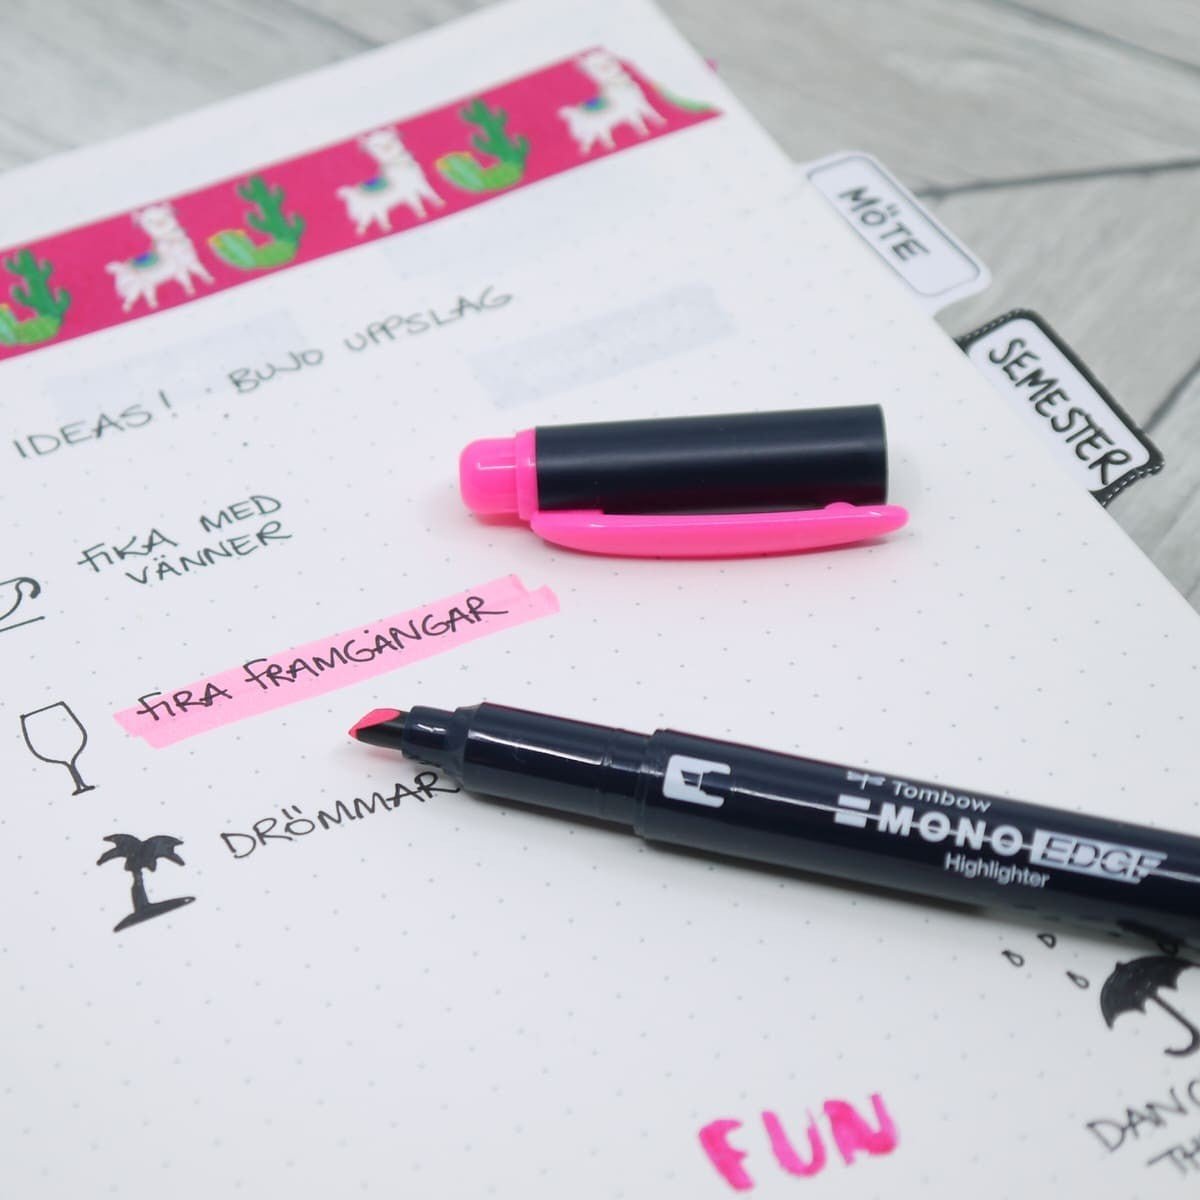 MÖTE
SEMESTER
IDEAS! · BUJO UPPSLAG
FIKA MED
VÄNNER
FIRA FRAMGÅNGAR
DRÖMMAR
Tombow
MONO EDGE
Highlighter
FUN